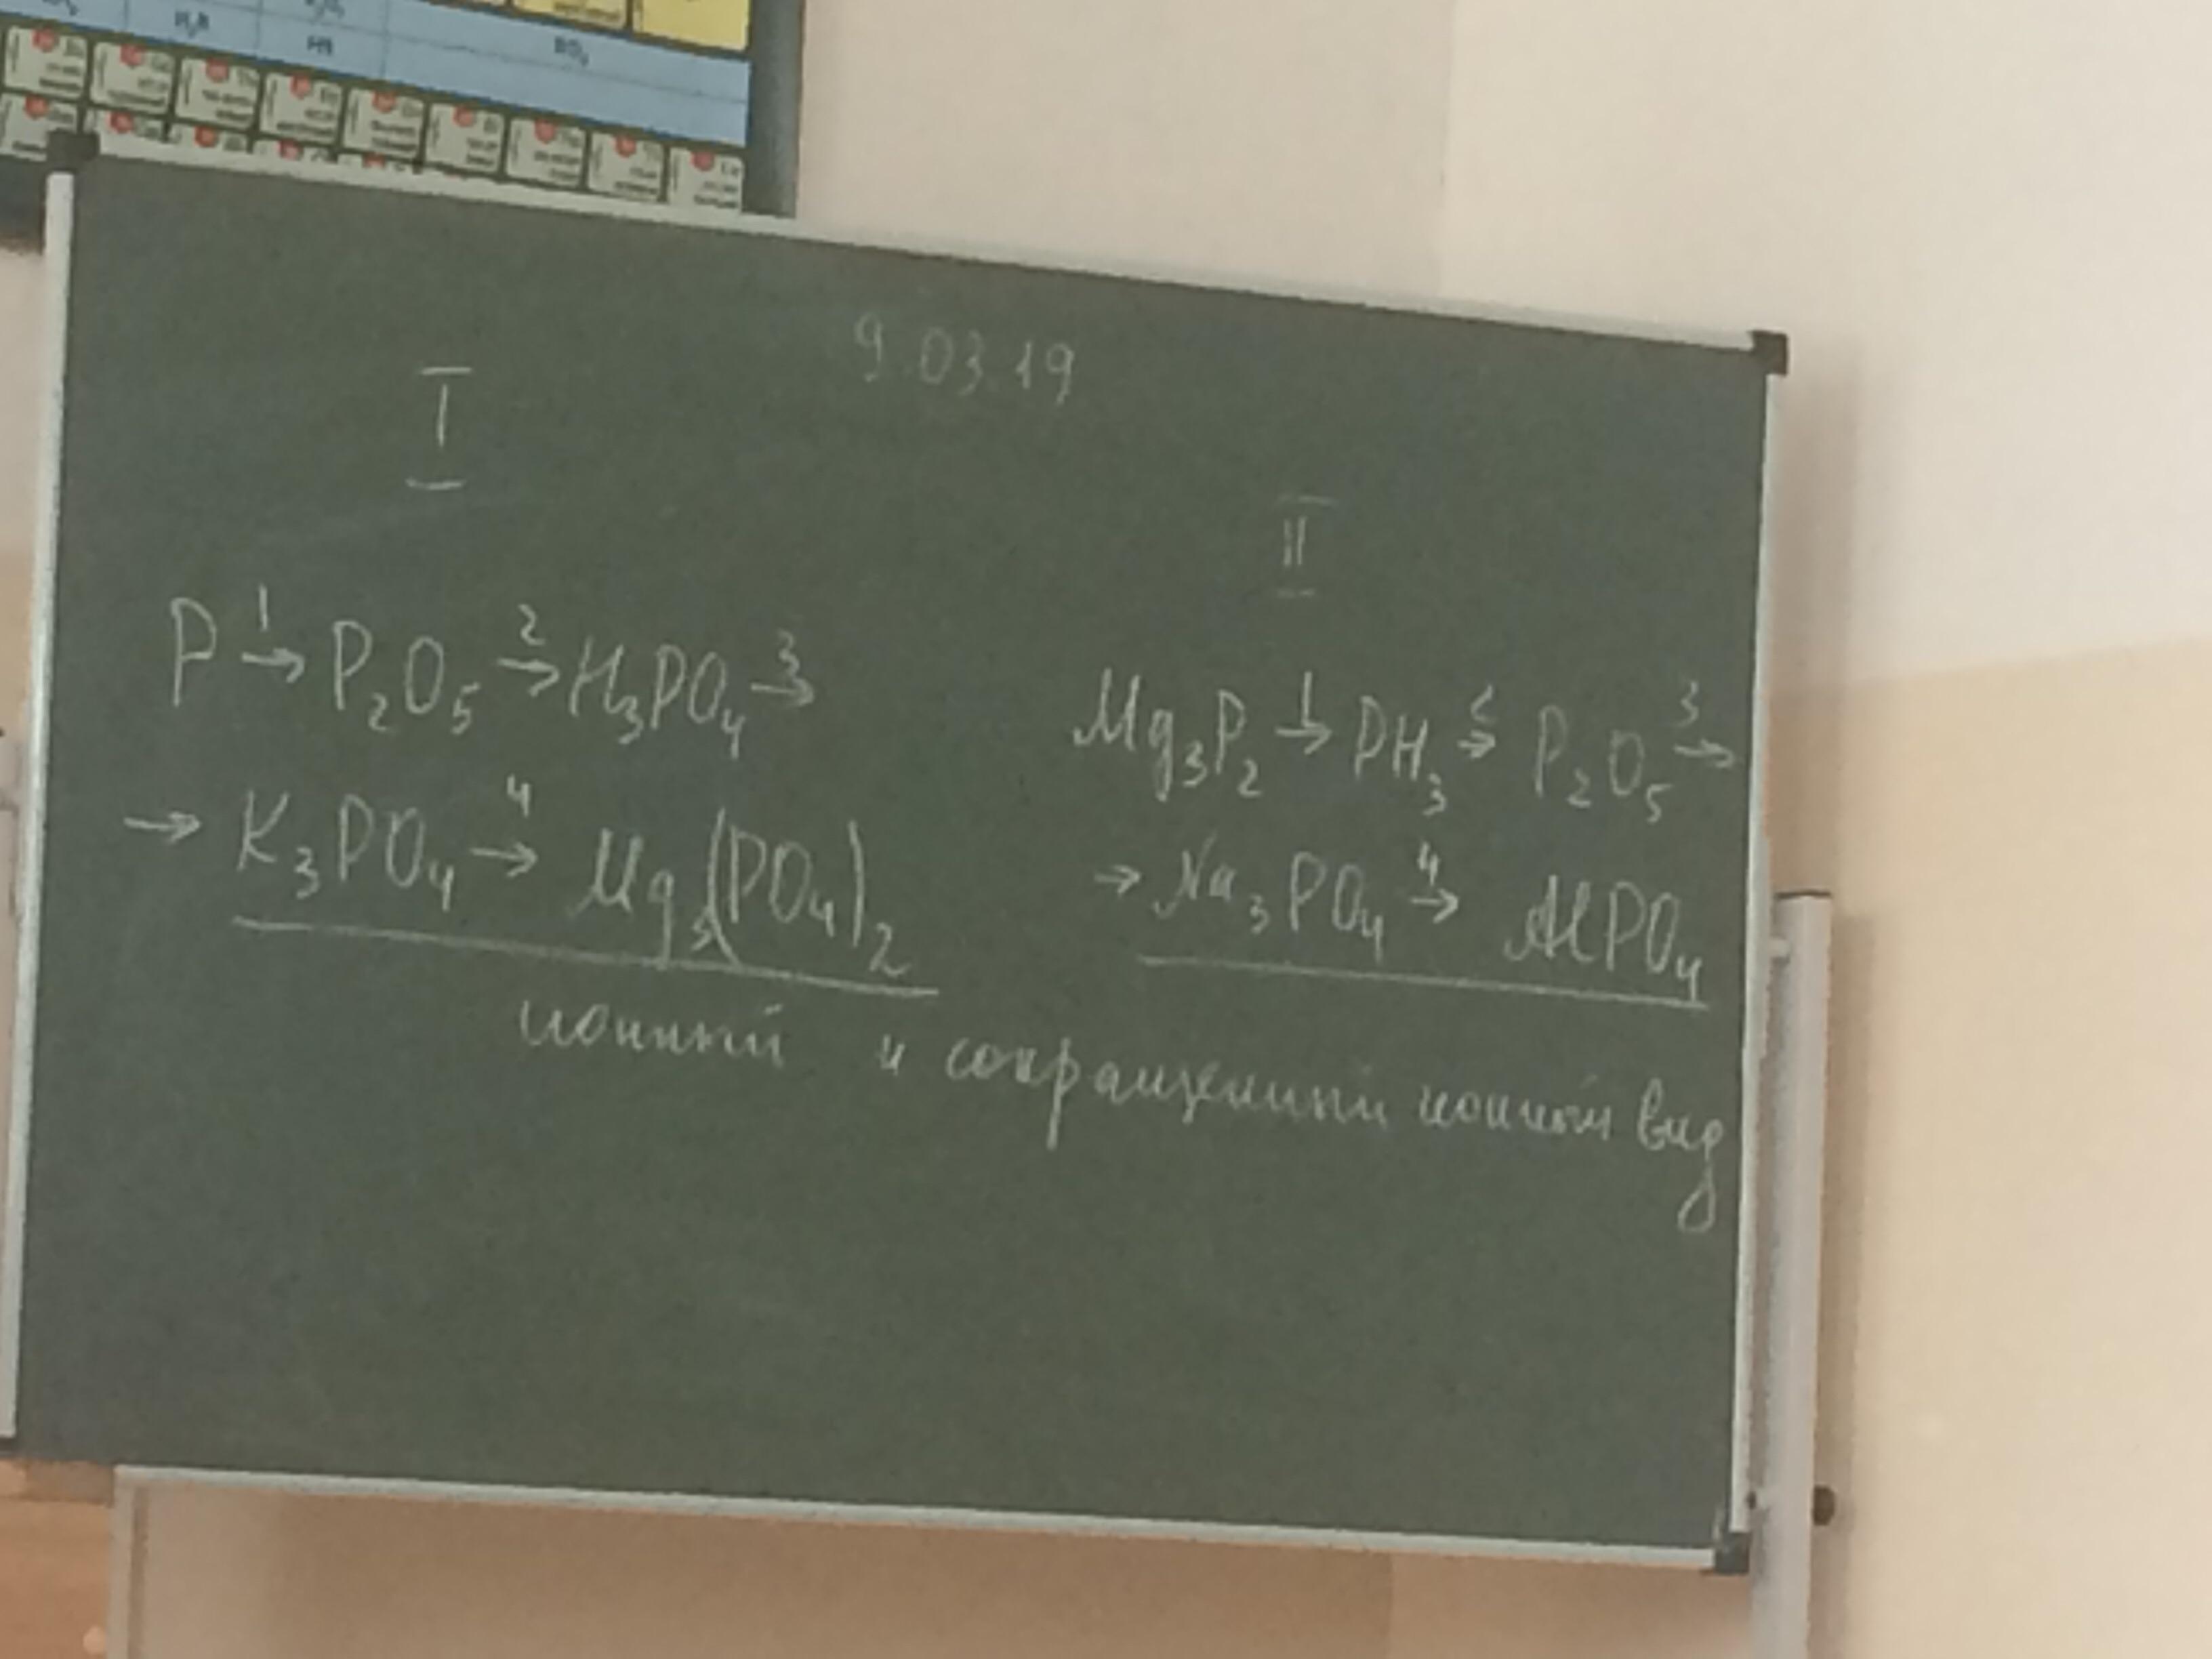 9.03.19
I
P 1→ P₂O₅ 2→ H₃PO₄ 3→
→ K₃PO₄ 4→ Mg₃(PO₄)₂
II
Mg₃P₂ 1→ PH₃ 2→ P₂O₅ 3→
→ Na₃PO₄ 4→ AlPO₄
ионный и сокращенный ионный вид